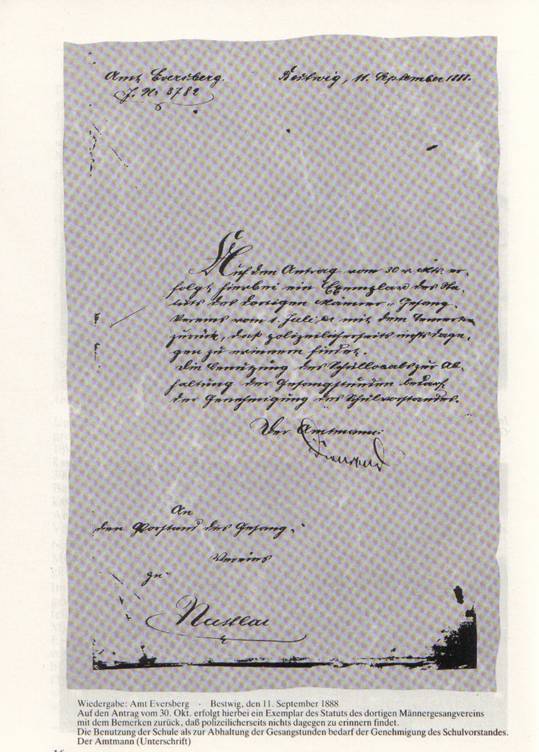 Amt Eversberg. Bestwig, 11. September 1888.
J. No 3782
Auf den Antrag vom 30 v. Mts. er-
folgt hierbei ein Exemplar des Sta-
tuts des dortigen Männer-Gesang-
Vereins vom 1. Juli mit dem Bemerken
zurück, daß polizeilicherseits nichts dage-
gen zu erinnern findet.
Die Benutzung des Schullocals zur Ab-
haltung der Gesangstunden bedarf
der Genehmigung des Schulvorstandes.
Der Amtmann:
An
den Vorstand des Gesang-
Vereins
zu
Nuttlar
Wiedergabe: Amt Eversberg - Bestwig, den 11. September 1888
Auf den Antrag vom 30. Okt. erfolgt hierbei ein Exemplar des Statuts des dortigen Männergesangvereins
mit dem Bemerken zurück, daß polizeilicherseits nichts dagegen zu erinnern findet.
Die Benutzung der Schule als zur Abhaltung der Gesangstunden bedarf der Genehmigung des Schulvorstandes.
Der Amtmann (Unterschrift)